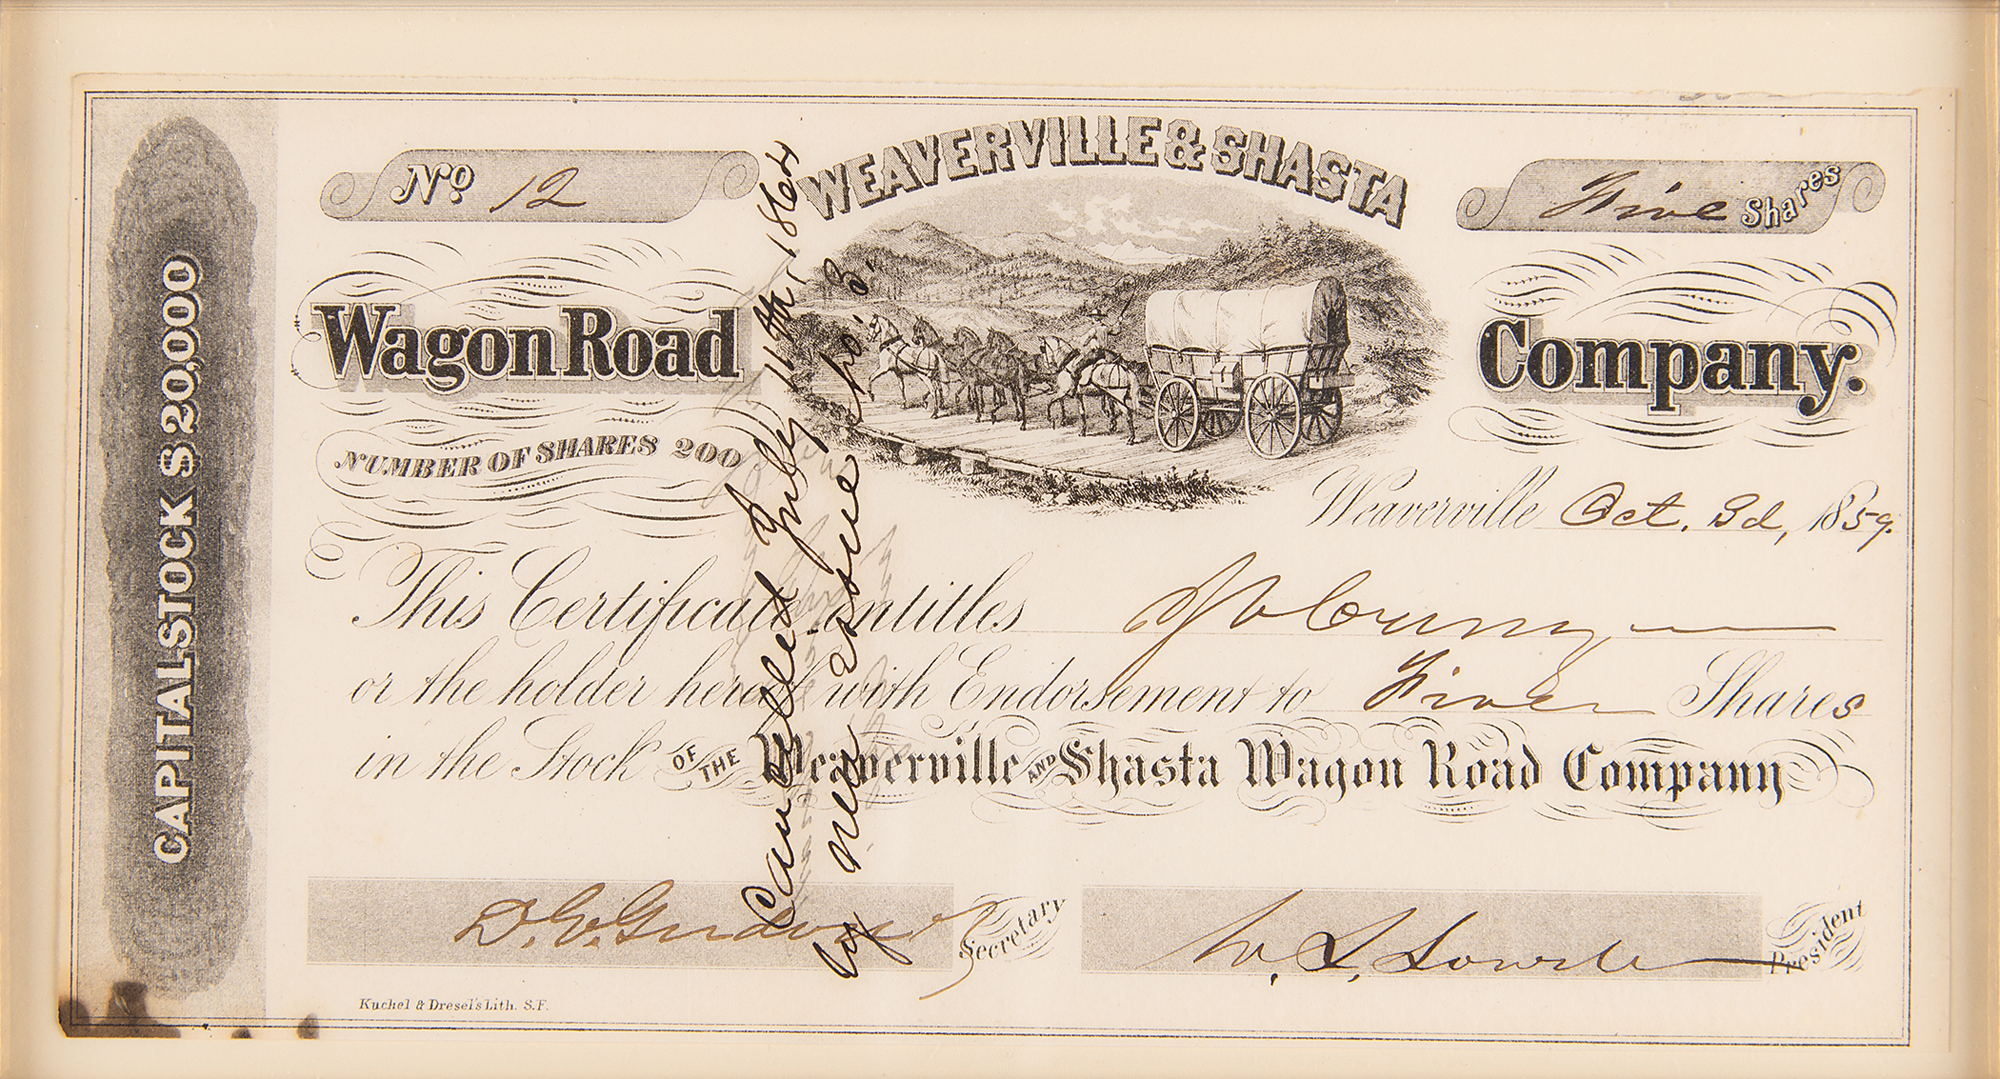 CAPITAL STOCK $20,000
No. 12
WEAVERVILLE & SHASTA
Five Shares
Wagon Road
Company.
NUMBER OF SHARES 200
Weaverville Oct. 3d, 1859.
This Certificate entitles
or the holder hereof with Endorsement to Five Shares
in the Stock OF THE Weaverville AND Shasta Wagon Road Company
Secretary
W. S. Lowe President
Kuchel & Dresel's Lith. S.F.
Cancelled July 11th, 1864
by new issue No. 3.